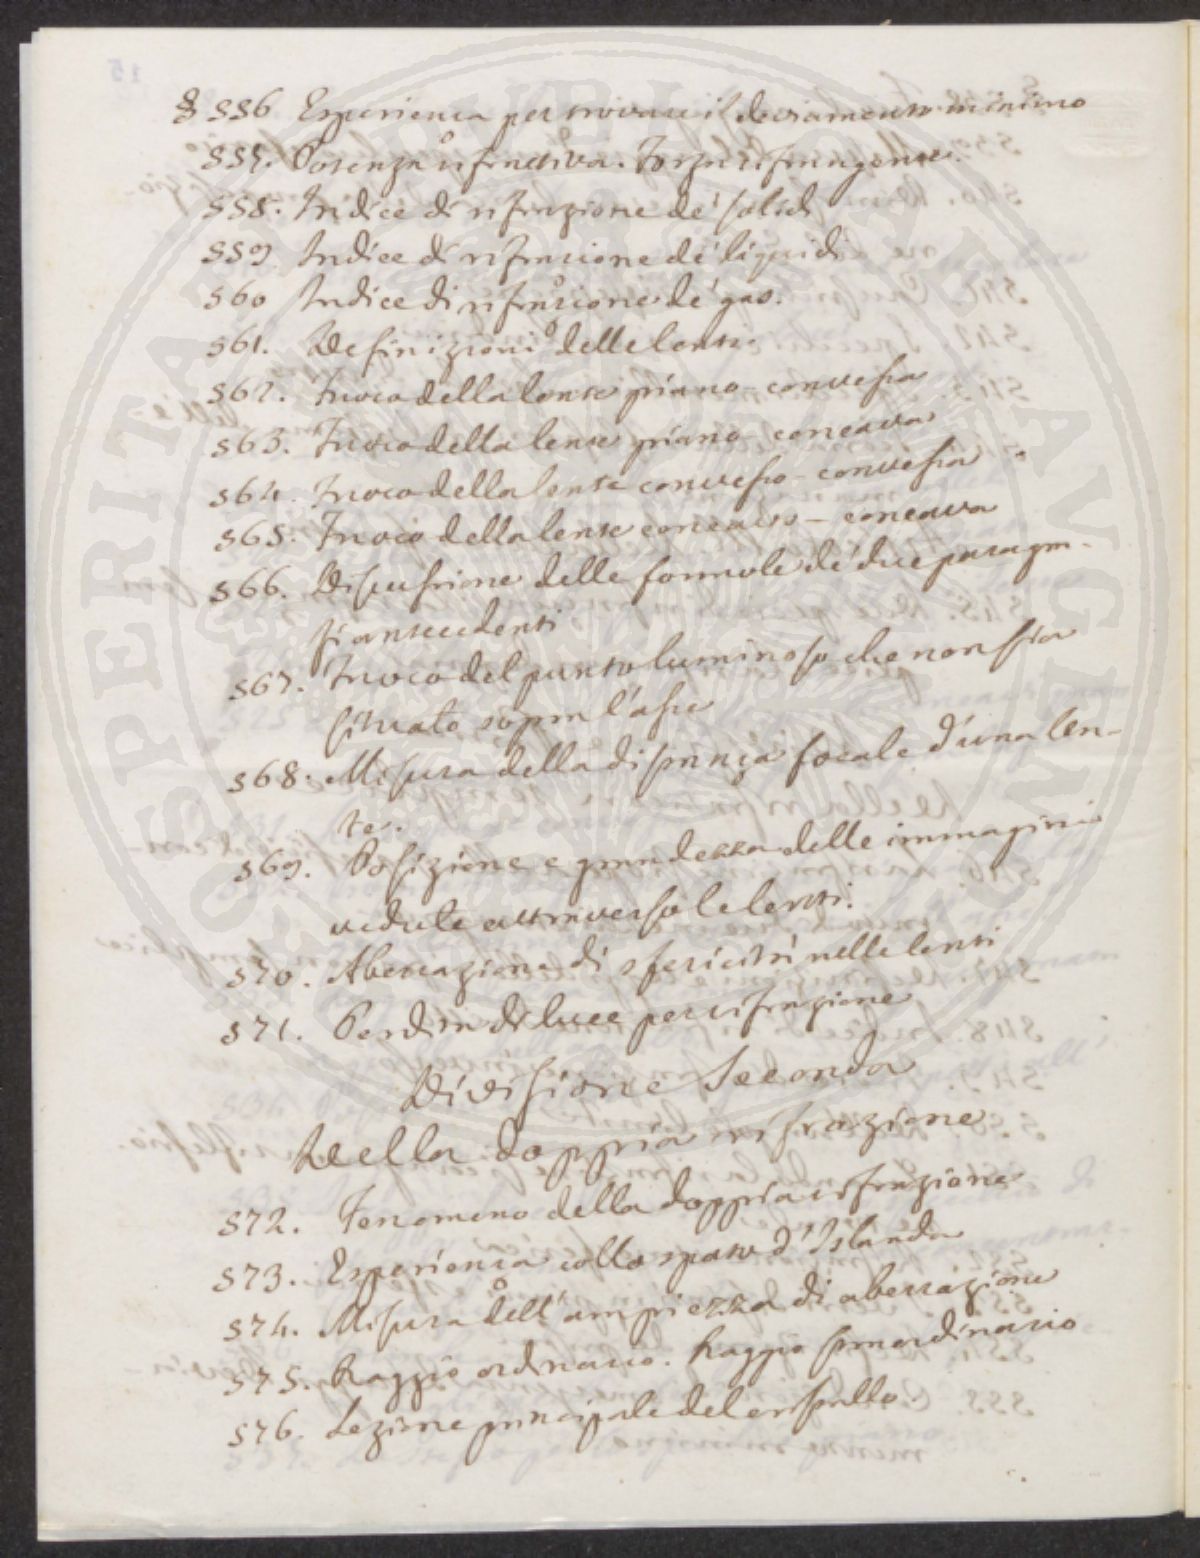 § 556 Esperienza per trovare il deviamento minimo
557. Potenza rifrattiva. Forza rifrangente.
558. Indice di rifrazione de' solidi
559 Indice di rifrazione de' liquidi
560 Indice di rifrazione de' gas.
561. Definizioni delle lenti.
562. Fuoco della lente piano-convessa
563. Fuoco della lente piano-concava
564. Fuoco della lente convesso-convessa
565. Fuoco della lente concavo-concava
566. Discussione delle formole de' due paragra-
fi antecedenti
567. Fuoco del punto luminoso che non sia
situato sopra l'asse
568. Misura della distanza focale d'una len-
te.
569. Posizione e grandezza delle immagini
vedute attraverso le lenti.
570. Aberrazione di sfericità nelle lenti
571. Perdita di luce per rifrazione
Divisione Seconda
Della doppia rifrazione
572. Fenomeno della doppia rifrazione
573. Esperienza collo spato d'Islanda
574. Misura dell'ampiezza di aberrazione
575. Raggio ordinario. Raggio straordinario
576. Sezione principale del cristallo.